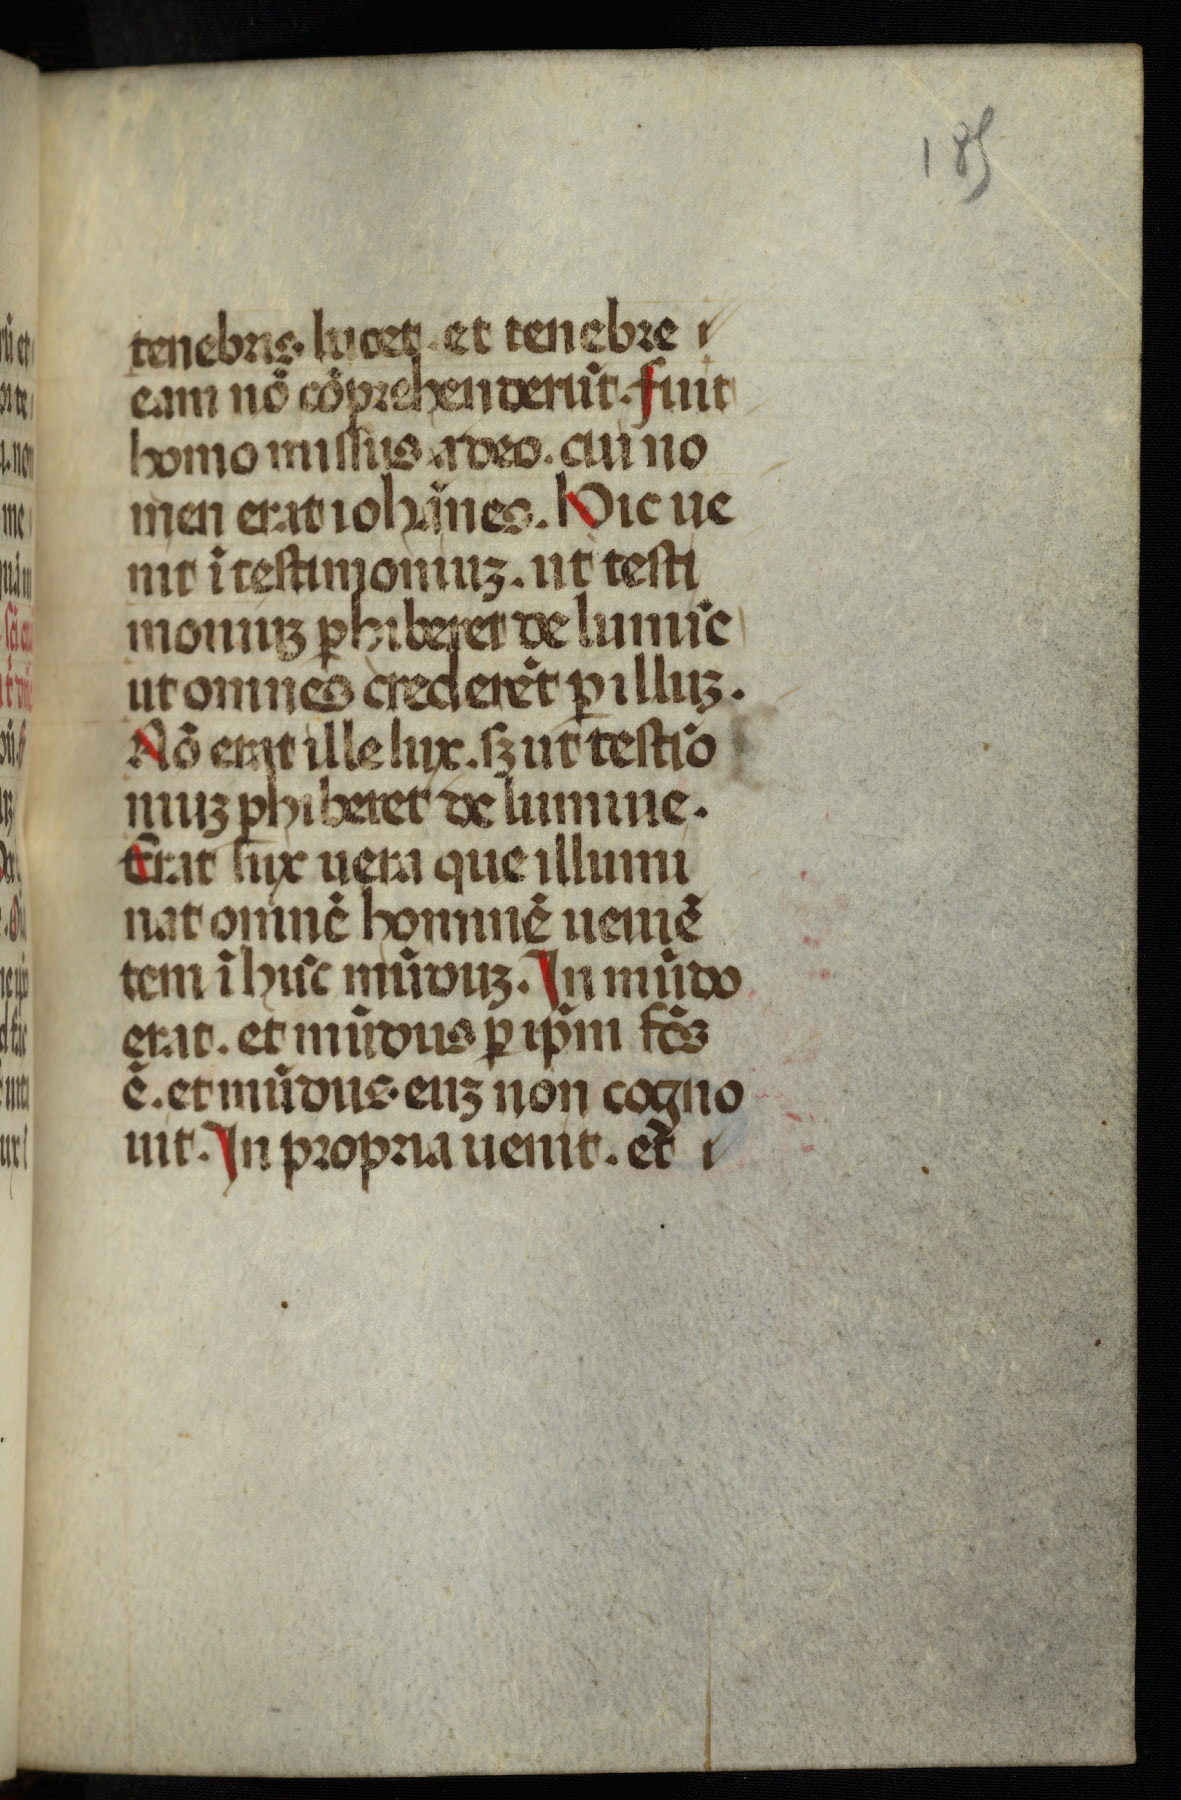 185
tenebris. lucet. et tenebre
eam nō cōprehenderūt. fuit
homo missus a deo. cui no
men erat iohānes. Hic ue
nit ī testimoniuꝫ. ut testi
moniuꝫ ꝑhiberet de lumīe
ut omnes crederēt ꝑ illuꝫ.
Nō erat ille lux. sꝫ ut testīo
niuꝫ ꝑhiberet de lumine.
Erat lux uera que illumi
nat omnē hominē ueniē
tem ī hūc mūduꝫ. In mūdo
erat. et mūdus ꝑ ip̄m fc̄s
ē. et mūdus. euꝫ non cogno
uit. In propria uenit. et